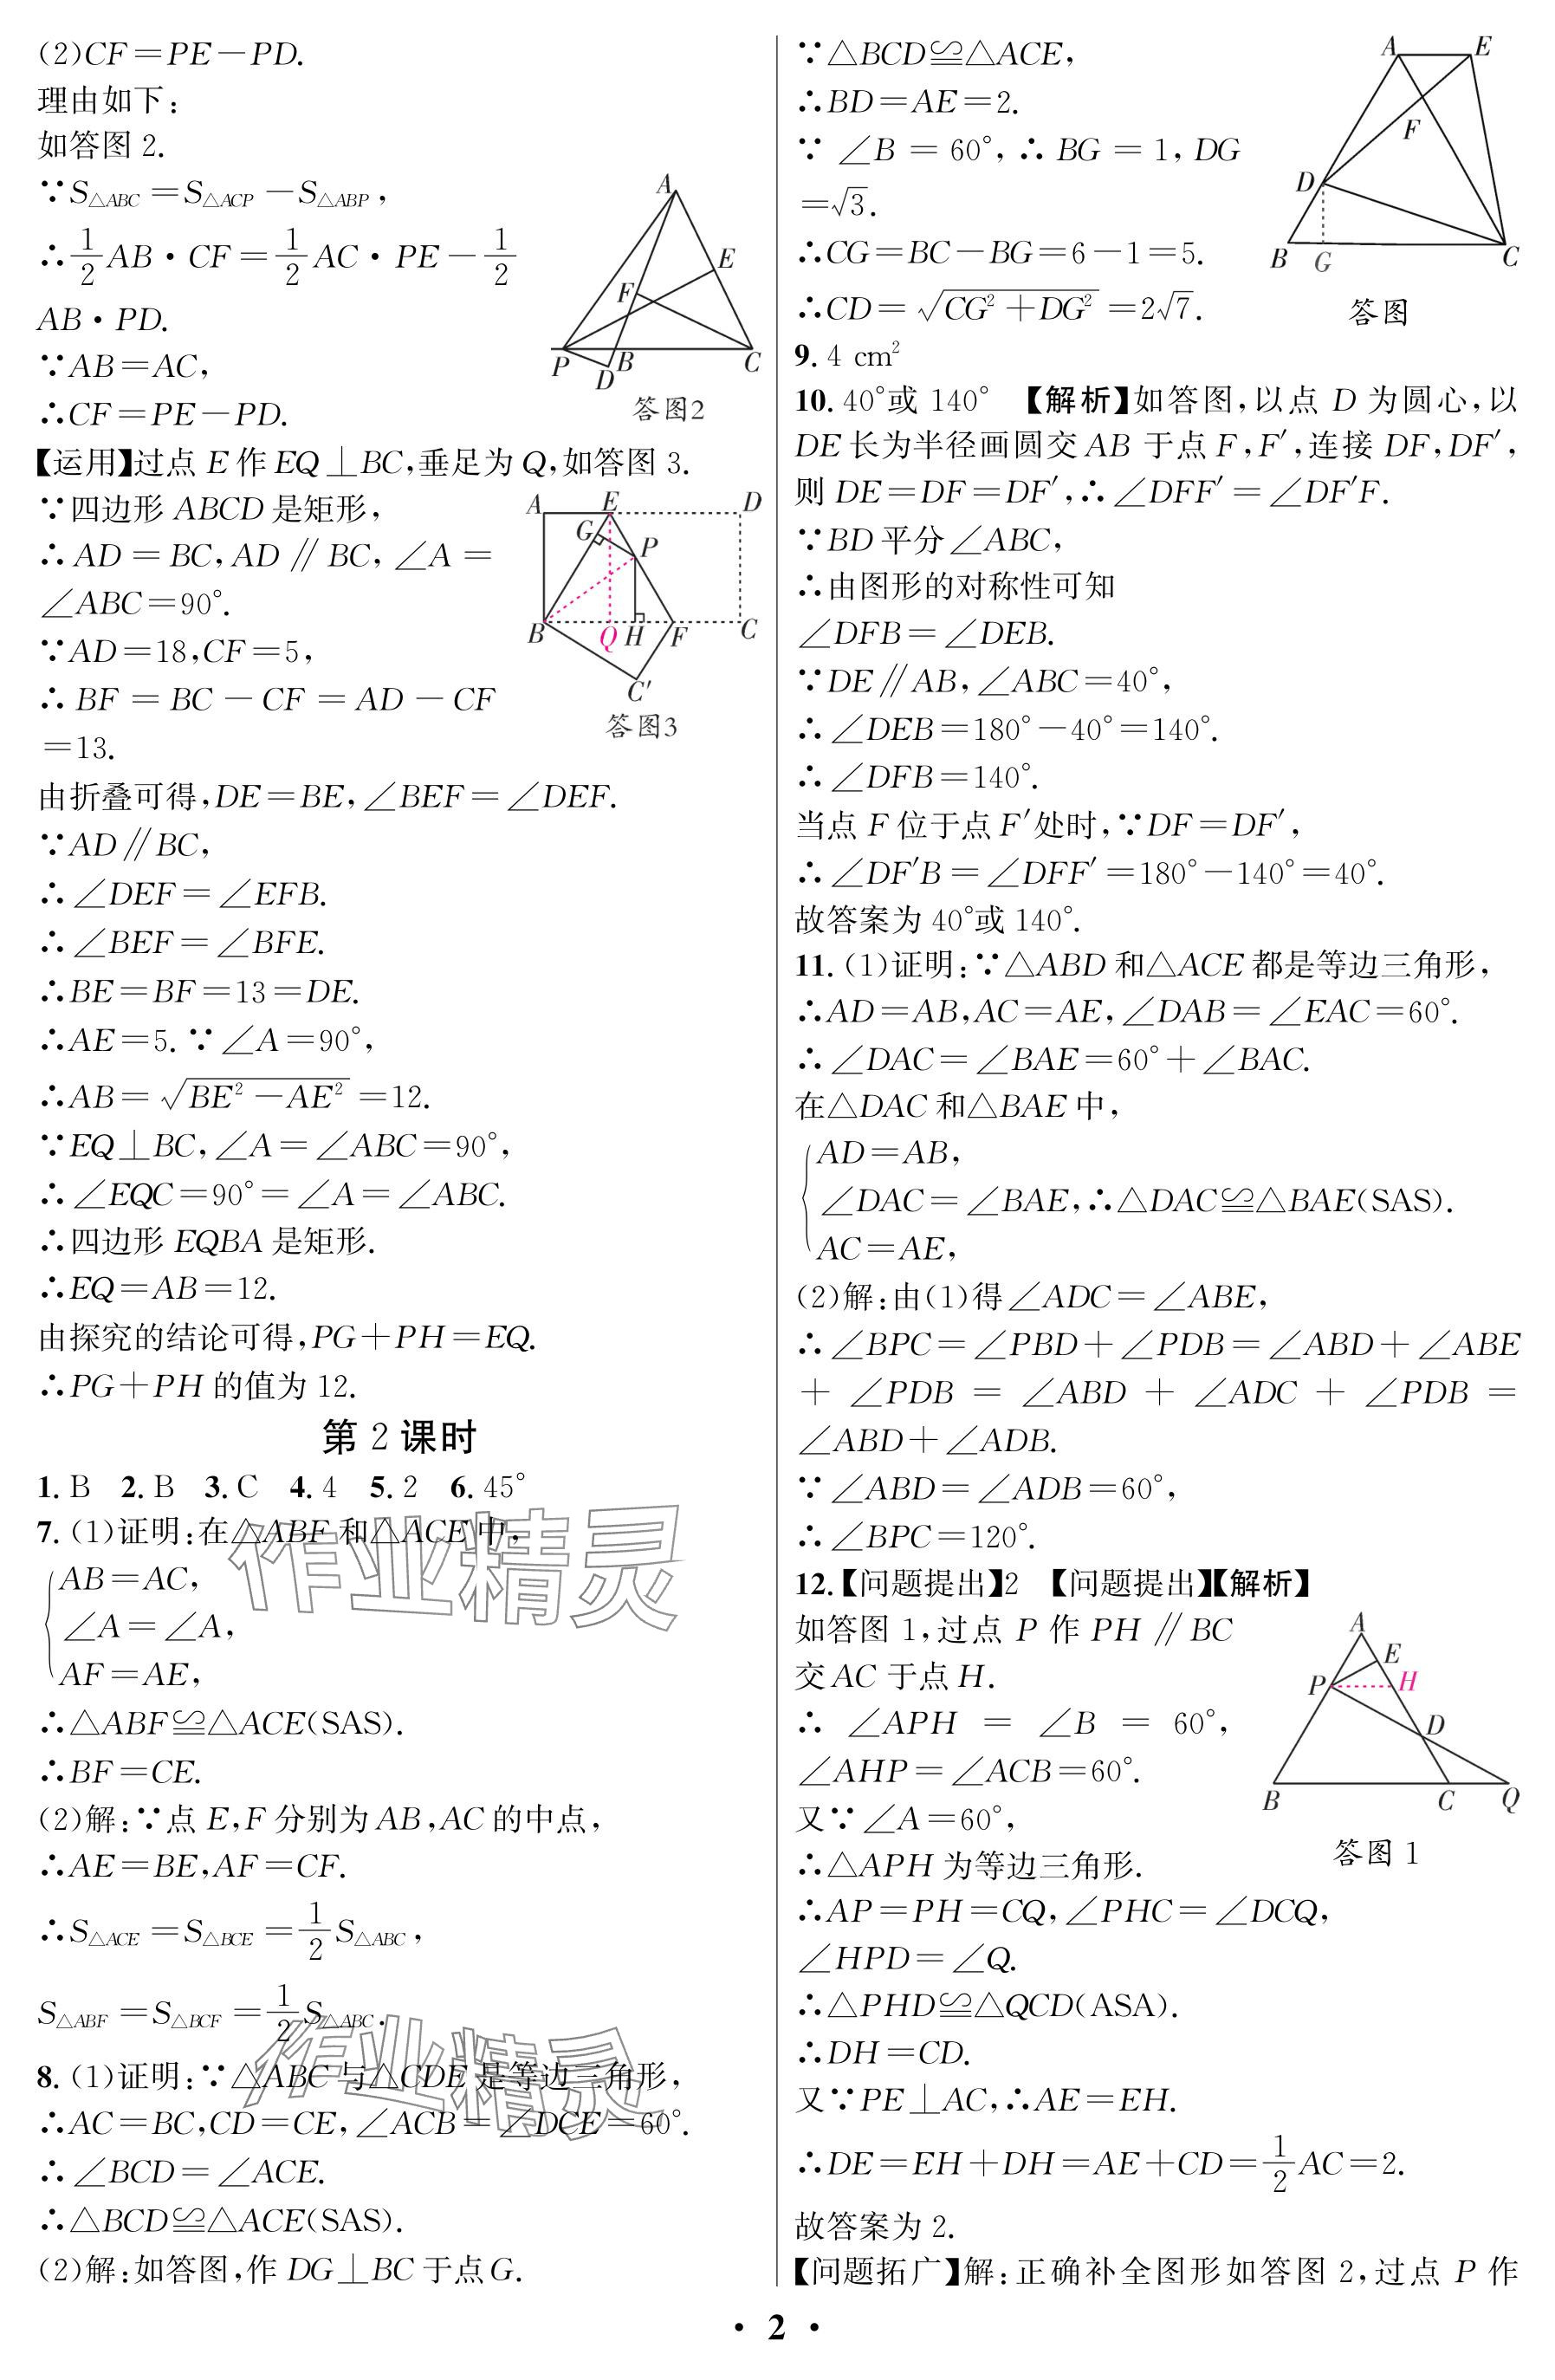 (2)CF=PE-PD.
理由如下:
如答图 2.
∵S△ABC=S△ACP-S△ABP,
∴1/2AB·CF=1/2AC·PE-1/2
AB·PD.
∵AB=AC,
∴CF=PE-PD.
A
E
F
P
D
B
C
答图2
【运用】过点 E 作 EQ⊥BC,垂足为 Q,如答图 3.
∵四边形 ABCD 是矩形,
∴AD=BC,AD∥BC,∠A=
∠ABC=90°.
∵AD=18,CF=5,
∴BF=BC-CF=AD-CF
=13.
A
E
D
G
P
B
Q
H
F
C
C′
答图3
由折叠可得,DE=BE,∠BEF=∠DEF.
∵AD∥BC,
∴∠DEF=∠EFB.
∴∠BEF=∠BFE.
∴BE=BF=13=DE.
∴AE=5. ∵∠A=90°,
∴AB=√(BE²-AE²)=12.
∵EQ⊥BC,∠A=∠ABC=90°,
∴∠EQC=90°=∠A=∠ABC.
∴四边形 EQBA 是矩形.
∴EQ=AB=12.
由探究的结论可得,PG+PH=EQ.
∴PG+PH 的值为 12.
第 2 课时
1. B 2. B 3. C 4. 4 5. 2 6. 45°
7. (1)证明:在△ABF 和△ACE 中,
AB=AC,
∠A=∠A,
AF=AE,
∴△ABF≌△ACE(SAS).
∴BF=CE.
(2)解:∵点 E,F 分别为 AB,AC 的中点,
∴AE=BE,AF=CF.
∴S△ACE=S△BCE=1/2S△ABC,
S△ABF=S△BCF=1/2S△ABC.
8. (1)证明:∵△ABC 与△CDE 是等边三角形,
∴AC=BC,CD=CE,∠ACB=∠DCE=60°.
∴∠BCD=∠ACE.
∴△BCD≌△ACE(SAS).
(2)解:如答图,作 DG⊥BC 于点 G.
作业精灵
作业精灵
∵△BCD≌△ACE,
∴BD=AE=2.
∵∠B=60°,∴BG=1,DG
=√3.
∴CG=BC-BG=6-1=5.
∴CD=√(CG²+DG²)=2√7.
A
E
F
D
B
G
C
答图
9. 4 cm²
10. 40°或 140° 【解析】如答图,以点 D 为圆心,以
DE 长为半径画圆交 AB 于点 F,F′,连接 DF,DF′,
则 DE=DF=DF′,∴∠DFF′=∠DF′F.
∵BD 平分∠ABC,
∴由图形的对称性可知
∠DFB=∠DEB.
∵DE∥AB,∠ABC=40°,
∴∠DEB=180°-40°=140°.
∴∠DFB=140°.
当点 F 位于点 F′处时,∵DF=DF′,
∴∠DF′B=∠DFF′=180°-140°=40°.
故答案为 40°或 140°.
11. (1)证明:∵△ABD 和△ACE 都是等边三角形,
∴AD=AB,AC=AE,∠DAB=∠EAC=60°.
∴∠DAC=∠BAE=60°+∠BAC.
在△DAC 和△BAE 中,
AD=AB,
∠DAC=∠BAE,∴△DAC≌△BAE(SAS).
AC=AE,
(2)解:由(1)得∠ADC=∠ABE,
∴∠BPC=∠PBD+∠PDB=∠ABD+∠ABE
+∠PDB=∠ABD+∠ADC+∠PDB=
∠ABD+∠ADB.
∵∠ABD=∠ADB=60°,
∴∠BPC=120°.
12.【问题提出】2 【问题提出】【解析】
如答图 1,过点 P 作 PH∥BC
交 AC 于点 H.
∴∠APH=∠B=60°,
∠AHP=∠ACB=60°.
又∵∠A=60°,
∴△APH 为等边三角形.
A
E
P
H
D
B
C
Q
答图 1
∴AP=PH=CQ,∠PHC=∠DCQ,
∠HPD=∠Q.
∴△PHD≌△QCD(ASA).
∴DH=CD.
又∵PE⊥AC,∴AE=EH.
∴DE=EH+DH=AE+CD=1/2AC=2.
故答案为 2.
【问题拓广】解:正确补全图形如答图 2,过点 P 作
· 2 ·